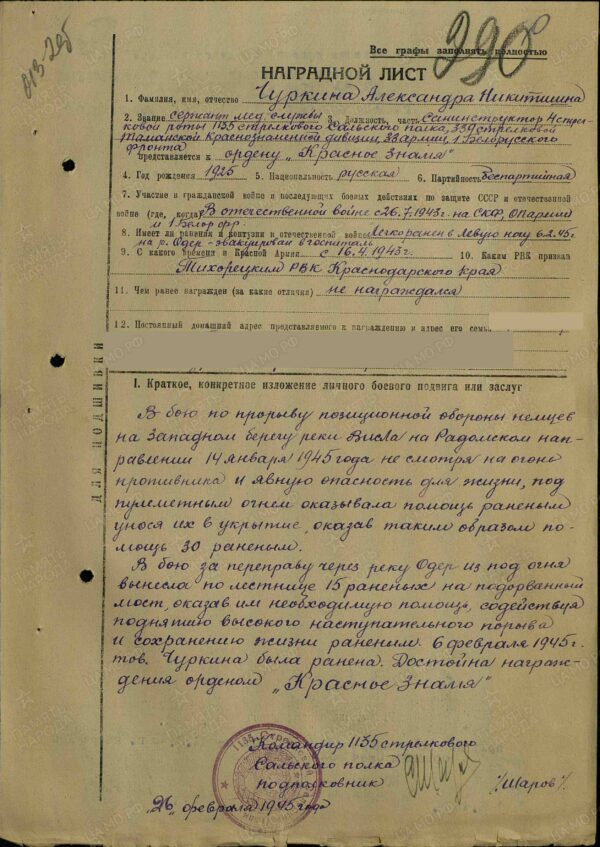 013-295
390
Все графы заполнять полностью
НАГРАДНОЙ ЛИСТ
1. Фамилия, имя, отчество Чуркина Александра Никитишна
2. Звание сержант мед. службы 3. Должность, часть Санинструктор 4 стрел-
ковой роты 1135 стрелкового Сальского полка, 339 стрелковой
Таманской Краснознаменной дивизии, 33 армии, 1 Белорусского
фронта
представляется к ордену „Красное Знамя"
4. Год рождения 1925 5. Национальность русская 6. Партийность беспартийная
7. Участие в гражданской войне и последующих боевых действиях по защите СССР и отечественной
войне (где, когда) В отечественной войне с 26.7.1943г. на СКФ, ОПАрмии
и 1 Белор. фр.
8. Имеет ли ранения и контузии в отечественной войне Легко ранен в левую ногу 6.2.45г.
на р. Одер - эвакуирован в госпиталь
9. С какого времени в Красной Армии с 16.4.1943г. 10. Каким РВК призван
Тихорецким РВК Краснодарского края
11. Чем ранее награжден (за какие отличия) не награждался
12. Постоянный домашний адрес представляемого к награждению и адрес его семьи
ДЛЯ ПОДШИВКИ
I. Краткое, конкретное изложение личного боевого подвига или заслуг
В бою по прорыву позиционной обороны немцев
на Западном берегу реки Висла на Радомском нап-
равлении 14 января 1945 года не смотря на огонь
противника и явную опасность для жизни, под
пулеметным огнем оказывала помощь раненым
унося их в укрытие, оказав таким образом по-
мощь 30 раненым.
В бою за переправу через реку Одер из под огня
вынесла по лестнице 15 раненых на подорванный
мост, оказав им необходимую помощь, содействуя
поднятию высокого наступательного порыва
и сохранению жизни раненым. 6 февраля 1945г.
тов. Чуркина была ранена. Достойна награж-
дения орденом „Красное Знамя"
Командир 1135 стрелкового
Сальского полка
подполковник /Шаров/.
„26" февраля 1945 года